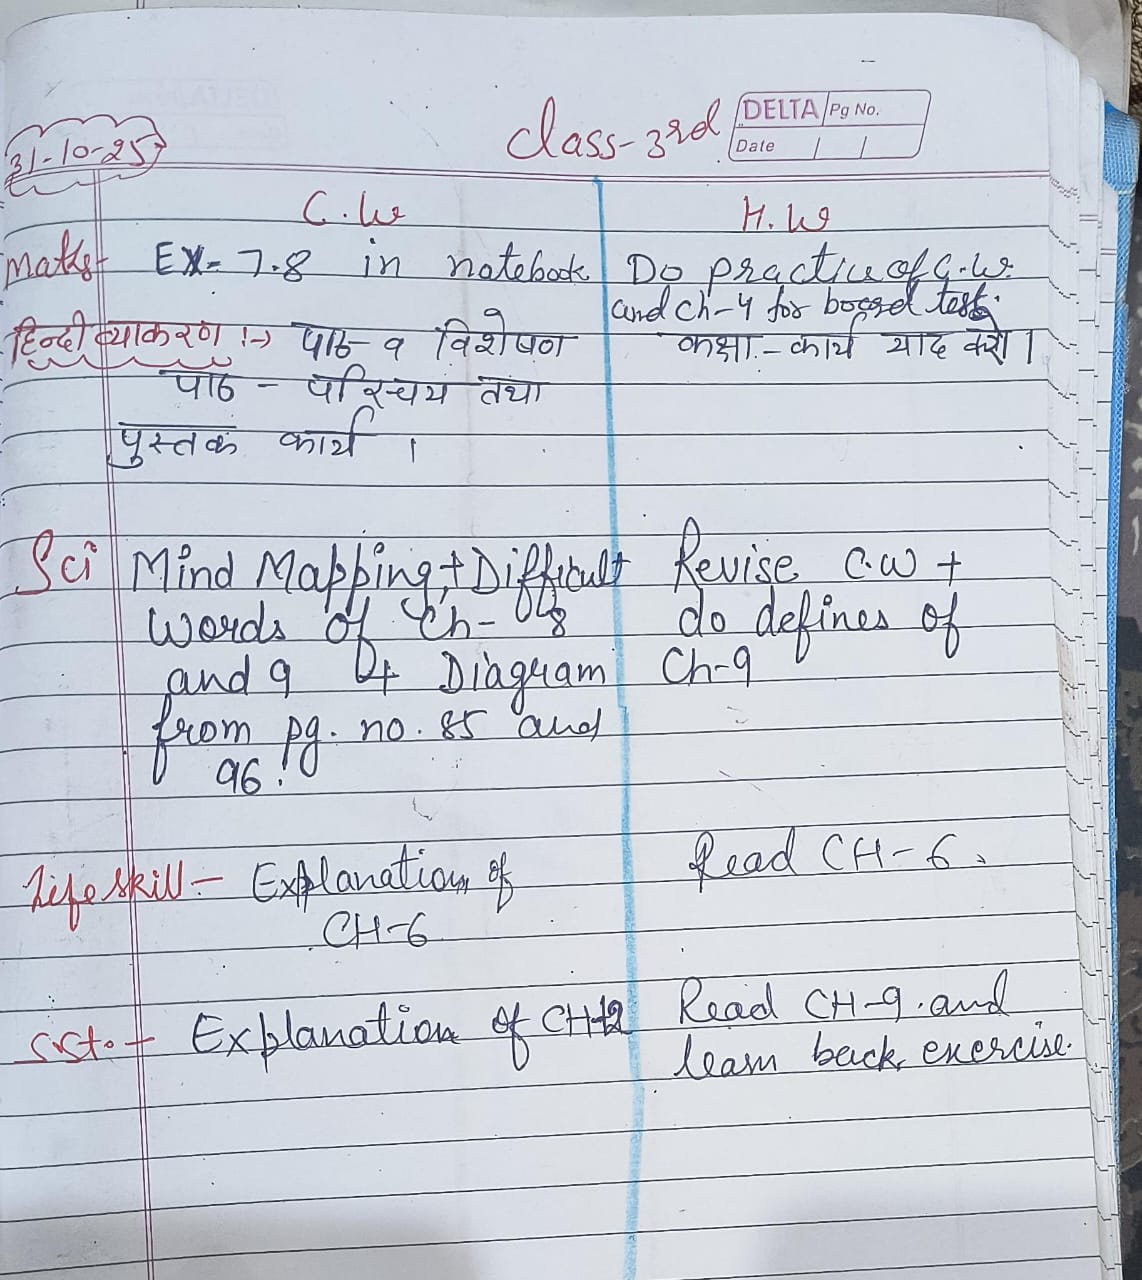 31-10-25
class-3rd
DELTA Pg No.
Date / /
C.W
H.W
Maths- Ex-7.8 in notebook
Do practice of C.W.
and Ch-4 for board test.
हिन्दी व्याकरण :-> पाठ-९ विशेषण
कक्षा-कार्य याद करो।
पाठ - परिचय तथा
पुस्तक कार्य ।
Sci Mind Mapping + Difficult
Words of Ch- 8
and 9 + Diagram
from pg. no. 85 and
96.
Revise C.W +
do defines of
Ch-9
Life skill - Explanation of
CH-6
Read CH-6.
S.St. - Explanation of CH-12
Read CH-9 and
learn back exercise.